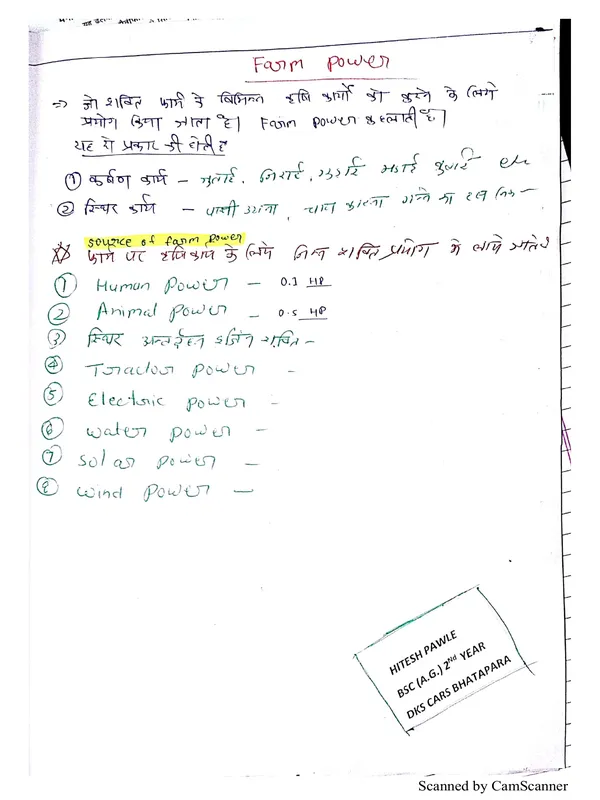 Farm power
⇒ जो शक्ति फार्म के विभिन्न कृषि कार्यो को करने के लिये
प्रयोग किया जाता है। Farm power कहलाती है।
यह दो प्रकार की होती है
① कर्षण कार्य – जुताई, निराई, गुड़ाई मड़ाई etc
② स्थिर कार्य – पानी उठाना, चारा काटना गन्ने का रस
source of farm power
फार्म पर कृषि कार्य के लिये निम्न शक्ति प्रयोग में लाये जाते है
① Human power – 0.1 HP
② Animal power – 0.5 HP
③ स्थिर अन्तर्दहन इंजिन शक्ति –
④ Tractor power –
⑤ Electric power –
⑥ water power –
⑦ solar power –
⑧ wind power –
HITESH PAWLE
BSC (A.G.) 2Nd YEAR
DKS CARS BHATAPARA
Scanned by CamScanner